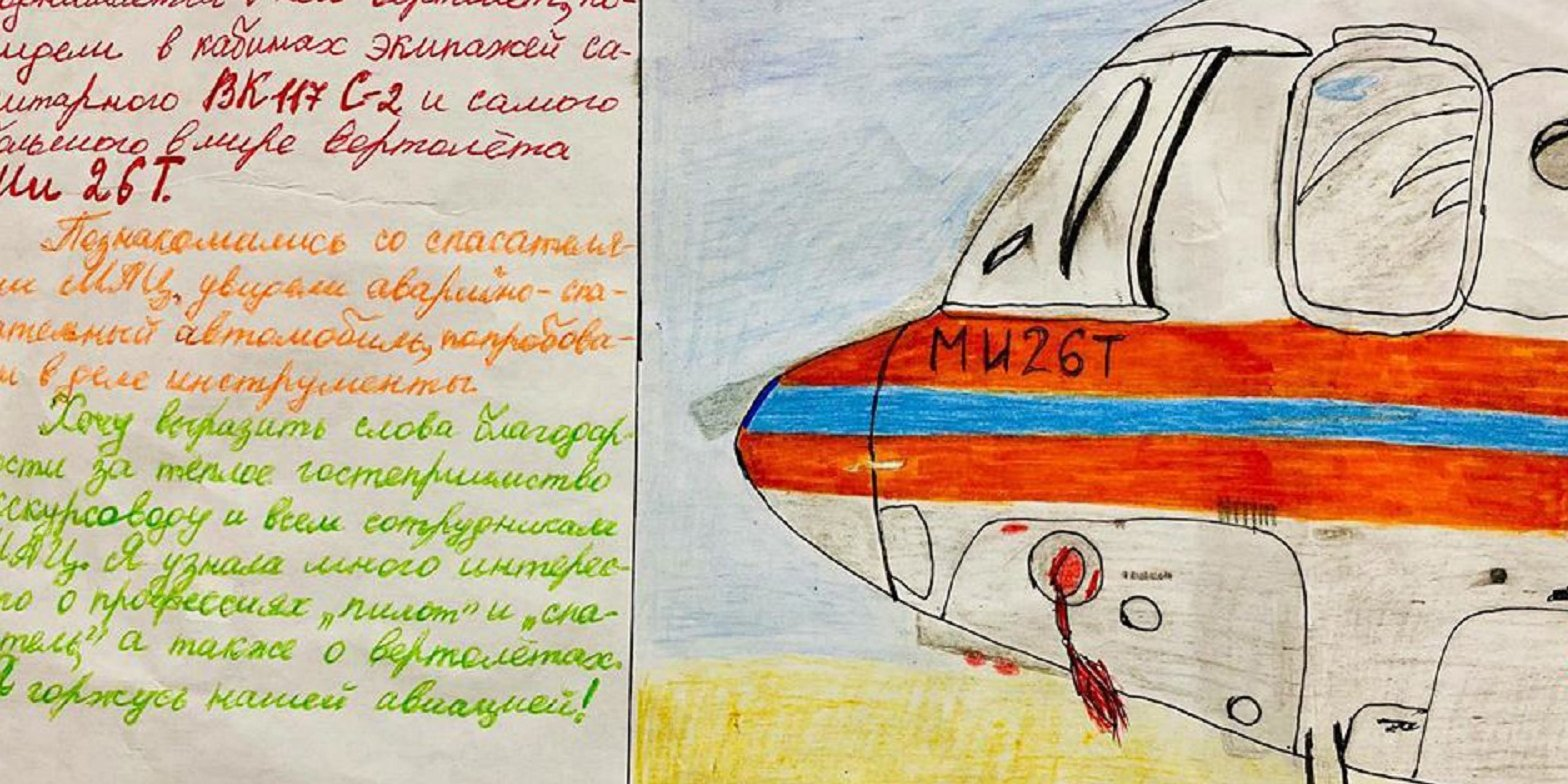 в кабинах экипажей са-
нитарного ВК 117 С-2 и самого
большого в мире вертолёта
Ми 26Т.
Познакомились со спасателя-
ми МАЦ, увидели аварийно-спа-
сательный автомобиль, попробова-
ли в деле инструменты.
Хочу выразить слова благодар-
ности за тёплое гостеприимство
экскурсоводу и всем сотрудникам
МАЦ. Я узнала много интерес-
го о профессиях „пилот" и „спа-
тель" а также о вертолётах.
Я горжусь нашей авиацией!
МИ26Т